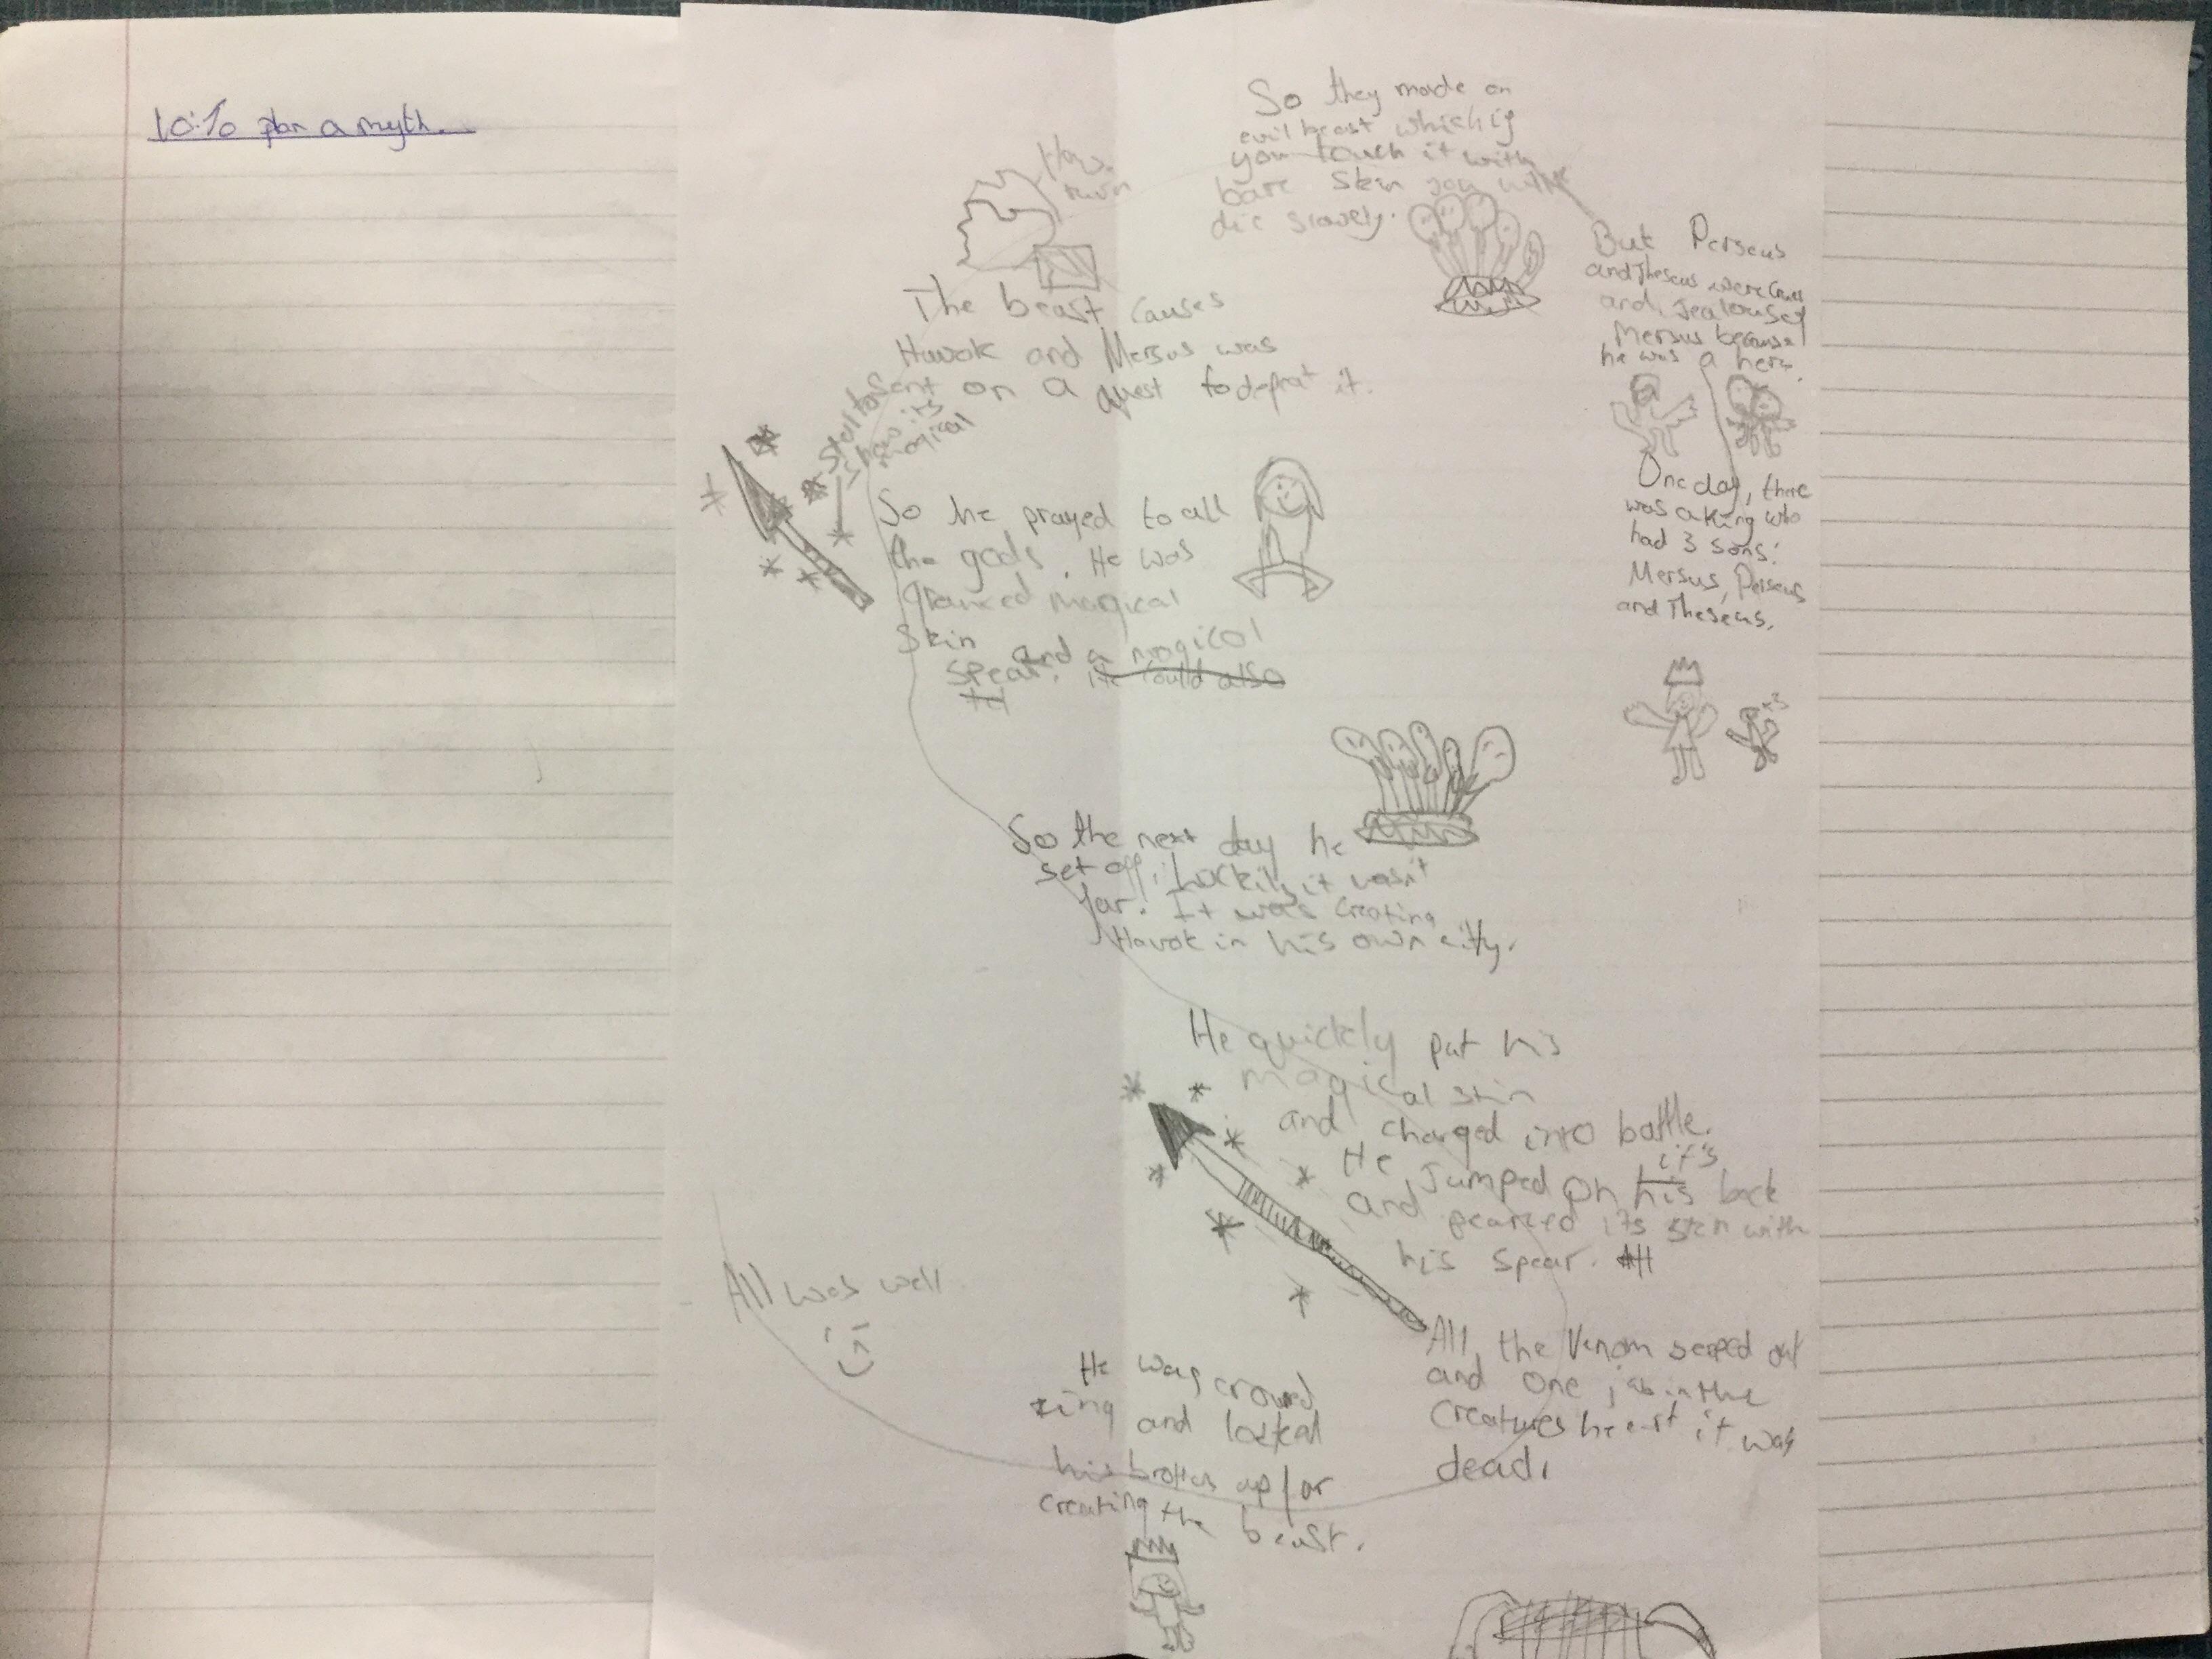 plan a myth.
One day, there
was a king who
had 3 sons:
Mersus, Perseus
and Theseus.
x3
But Perseus
and Theseus were
and Jealous of
Mersus because
he was a hero.
So they made an
evil beast which if
you touch it with
bare skin you will
die slowely.
The beast causes
Havok and Mersus was
sent on a quest to defeat it.
show its
magical
So he prayed to all
the gods. He was
granted magical
skin and a magical
spear. He could also
So the next day he
set off, Luckily it wasn't
far. It was creating
Havok in his own city.
He quickly put his
magical skin
and charged into battle.
it's
He Jumped on his back
and pearced its skin with
his spear. All
All the Venom seeped out
and one jab in the
creatures heart it was
dead.
He was crowed
king and locked
his brothers up for
creating the beast.
All was well